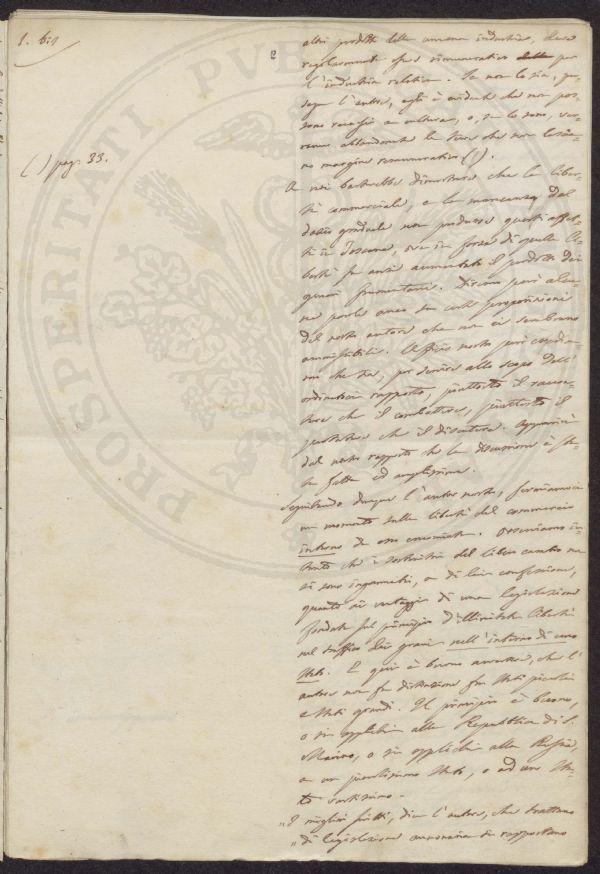 1. bis
2
altri prodotti della umana industria, deve
regolarmente essere remunerativo per
l'industria relativa. Se non lo sia, pro-
segue l'autore, egli è evidente che non pos-
sono recarsi a cultura, o, se lo sono, ver-
ranno abbandonate le terre che non lascia-
no margine remunerativo ( ).
( ) pag. 33.
A noi basterebbe dimostrare che la liber-
tà commerciale, e la mancanza del
dazio graduale non produsse questi effet-
ti in Toscana, ove in forza di quella li-
bertà fu anzi aumentato il prodotto dei
generi frumentarii. Diciam però alcu-
ne parole anco su certe proposizioni
del nostro autore che non ci sembrano
ammissibili. Officio nostro però credia-
mo che sia, per servire allo scopo dell'
ordinatoci rapporto, piuttosto il raccon-
tare che il combattere, piuttosto il
che il discutere. Apparirà
dal nostro rapporto che la discussione è sta-
ta fatta ed amplissima.
Seguitando dunque l'autore nostro, fermiamoci
un momento sulla libertà del commercio
interno da esso encomiata. Osserviamo in-
tanto che i sostenitori del libero cambio non
si sono ingannati, e di lui confessione,
quanto ai vantaggi di una legislazione
fondata sul principio d'illimitata libertà
nel traffico dei grani nell'interno di uno
Stato. E qui è buono avvertire, che l'
autore non fa distinzione fra Stati piccoli
e Stati grandi. Il principio è buono,
o si applichi alla Repubblica di S.
Marino, o si applichi alla Russia,
a un piccolissimo Stato, o ad uno Sta-
to vastissimo.
„I migliori scritti, dice l'autore, che trattano
„di legislazione annonaria si rapportano